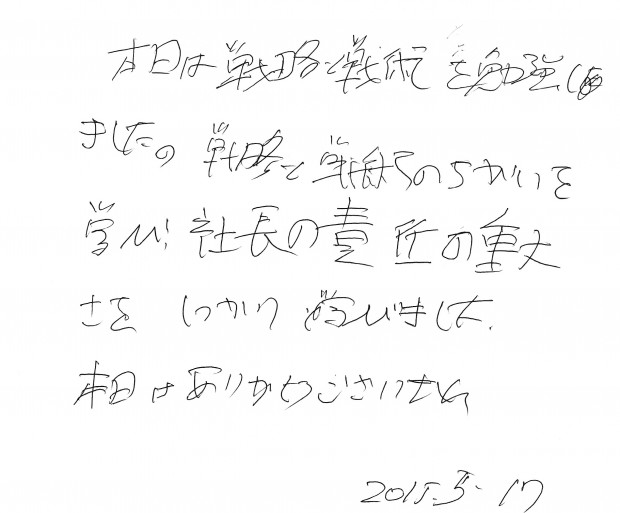 本日は戦略と戦術を勉強し
ました。戦略と戦術のちがいを
学び、社長の責任の重大
さをしっかり学びました。
本日はありがとうございました
2015.5-17